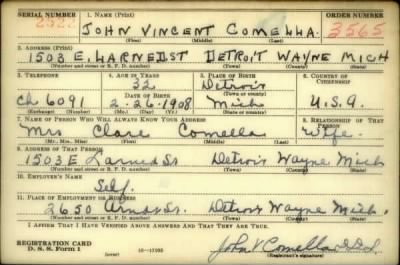 SERIAL NUMBER 1. NAME (Print) ORDER NUMBER
2522 JOHN VINCENT COMELLA 3565
(First) (Middle) (Last)
2. ADDRESS (Print)
1503 E. LARNED ST DETROIT WAYNE MICH
(Number and street or R. F. D. number) (Town) (County) (State)
3. TELEPHONE 4. AGE IN YEARS 5. PLACE OF BIRTH 6. COUNTRY OF CITIZENSHIP
32 Detroit
DATE OF BIRTH (Town or county)
Ch 6091 2-26-1908 Mich U.S.A.
(Exchange) (Number) (Mo.) (Day) (Yr.) (State or country)
7. NAME OF PERSON WHO WILL ALWAYS KNOW YOUR ADDRESS 8. RELATIONSHIP OF THAT PERSON
Mrs Clare Comella Wife
(Mr., Mrs., Miss) (First) (Middle) (Last)
9. ADDRESS OF THAT PERSON
1503 E Larned St Detroit Wayne Mich
(Number and street or R. F. D. number) (Town) (County) (State)
10. EMPLOYER'S NAME
Self
11. PLACE OF EMPLOYMENT OR BUSINESS
2650 St. Detroit Wayne Mich.
(Number and street or R. F. D. number) (Town) (County) (State)
I AFFIRM THAT I HAVE VERIFIED ABOVE ANSWERS AND THAT THEY ARE TRUE.
REGISTRATION CARD
D. S. S. Form 1 (over) 16—17105 John V Comella D.D.S.
(Registrant's signature)